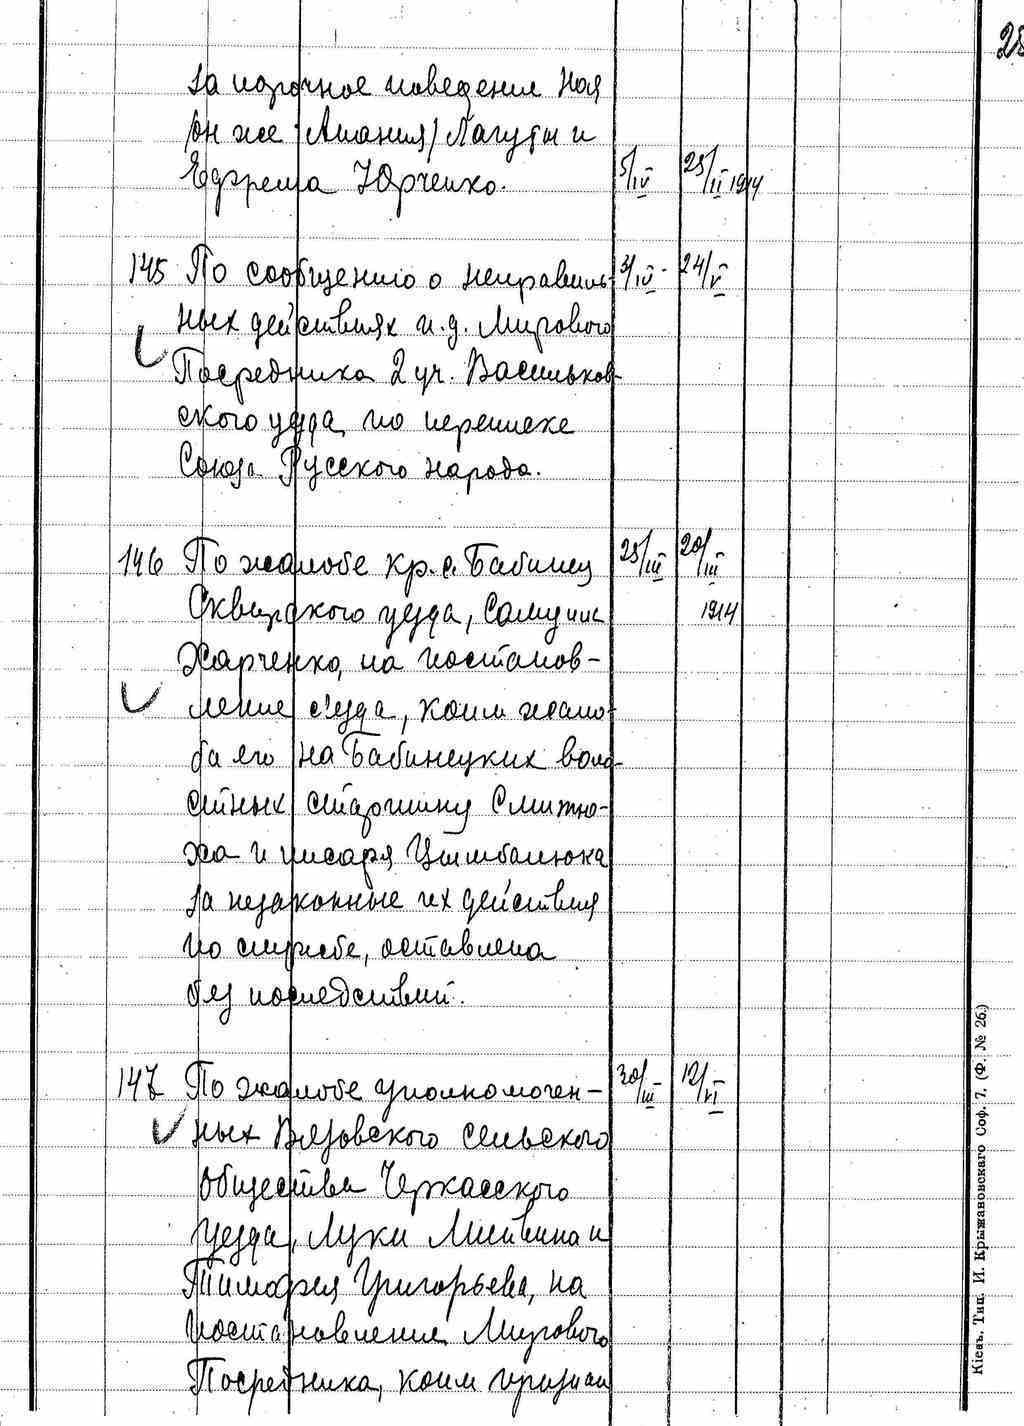 28
за порочное поведение Ная
/он же Анания/ Лагуты и
Ефрема Юрченко. 5/IV 25/II 1914
145 По сообщению о неправиль- 3/IV - 24/V
ных действиях и.д. Мирового
Посредника 2 уч. Васильков-
ского уезда, по переписке
Союза Русского народа.
146 По жалобе кр. с. Бабинец 25/III 20/III
Сквирского уезда, 1914
Харченко, на постанов-
ление с'езда, коим жало-
ба его на Бабинецких воло-
стных старшину Смитю-
ха и писаря Цымбалюка
за незаконные их действия
по службе, оставлена
без последствий.
147 По жалобе уполномочен- 30/III 12/VI
ных Вязовского сельского
Общества Черкасского
уезда, Луки Литвина и
Тимофея Григорьева, на
постановление Мирового
Посредника, коим признан
Кіевъ. Тип. И. Крыжановскаго Соф. 7, (Ф. № 26.)